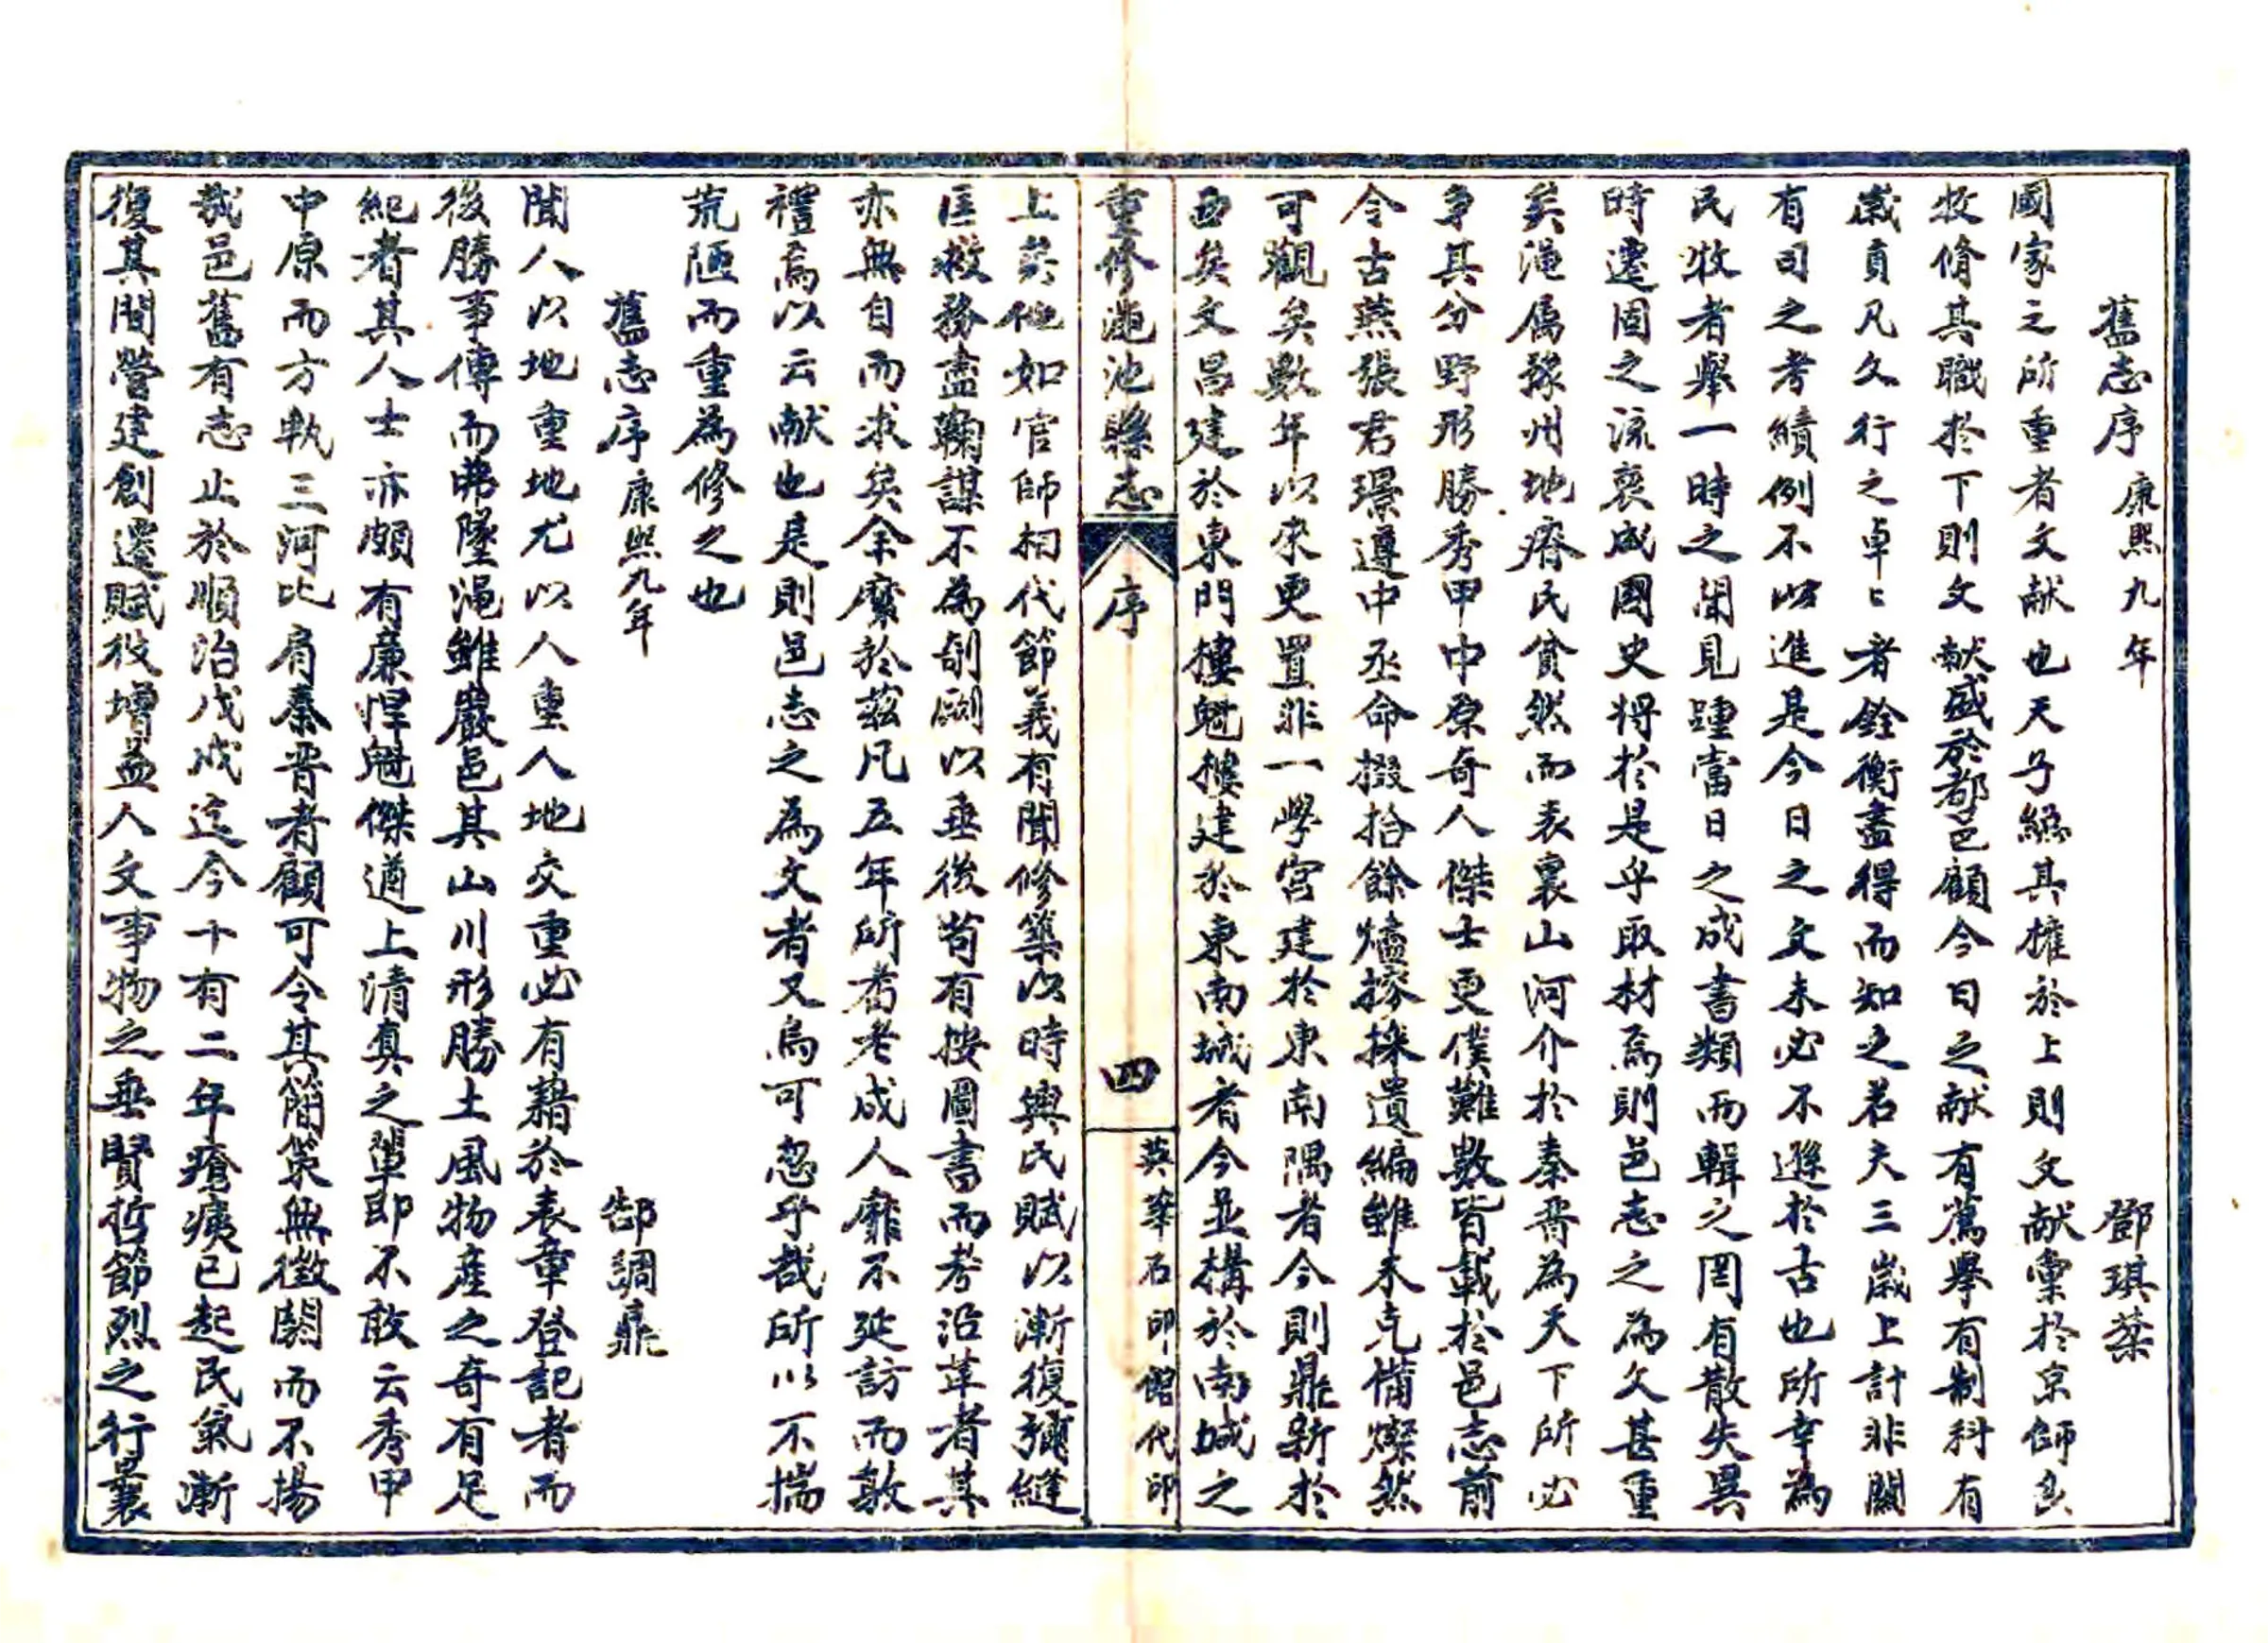 舊志序 康熙九年 鄧琪棻
國家之所重者文献也天子緫其擁於上則文献彙於京師良
牧脩其職於下則文献盛於都邑顧今日之献有薦舉有制科有
歲貢凡久行之卓〻者銓衡盡得而知之若夫三歲上計非關
有司之考績例不以進是今日之文未必不遜於古也所幸為
民牧者舉一時之聞見踵當日之成書類而輯之罔有散失異
時遷固之流裒成國史将於是乎取材焉則邑志之為久甚重
矣澠屬豫州地瘠民貧然而表裏山河介於秦晋為天下所必
争其分野形勝秀甲中原奇人傑士更僕難數皆載於邑志前
令古燕張君璟遵中丞命掇拾餘燼搽採遺編雖未克備燦然
可觀矣數年以來更置非一學宫建於東南隅者今則鼎新於
西矣文昌建於東門樓魁樓建於東南城者今並搆於南城之
重修澠池縣志 序 四 英華石印館代印
上矣他如官師相代節義有聞修築以時輿民賦以漸復彌縫
匡救務盡鞠謀不為剞劂以垂後苟有按圖書而考沿革者其
亦無自而求矣余縻於茲凡五年所耆老成人靡不延訪而敦
禮焉以云献也是則邑志之為文者又烏可忽乎哉所以不揣
荒陋而重為修之也
舊志序 康熙九年 郜調鼎
聞人以地重地尤以人重人地交重必有藉於表章登記者而
後勝事傳而弗墜澠雖巖邑其山川形勝土風物産之奇有足
紀者其人士亦頗有廉悍魁傑遒上清真之輩即不敢云秀甲
中原而方軌三河比肩秦晋者顧可令其簡策無徵闕而不揚
哉邑舊有志止於順治戊戌迄今十有二年瘡痍已起民氣漸
復其間營建創遷賦役增益人文事物之垂賢哲節烈之行曩